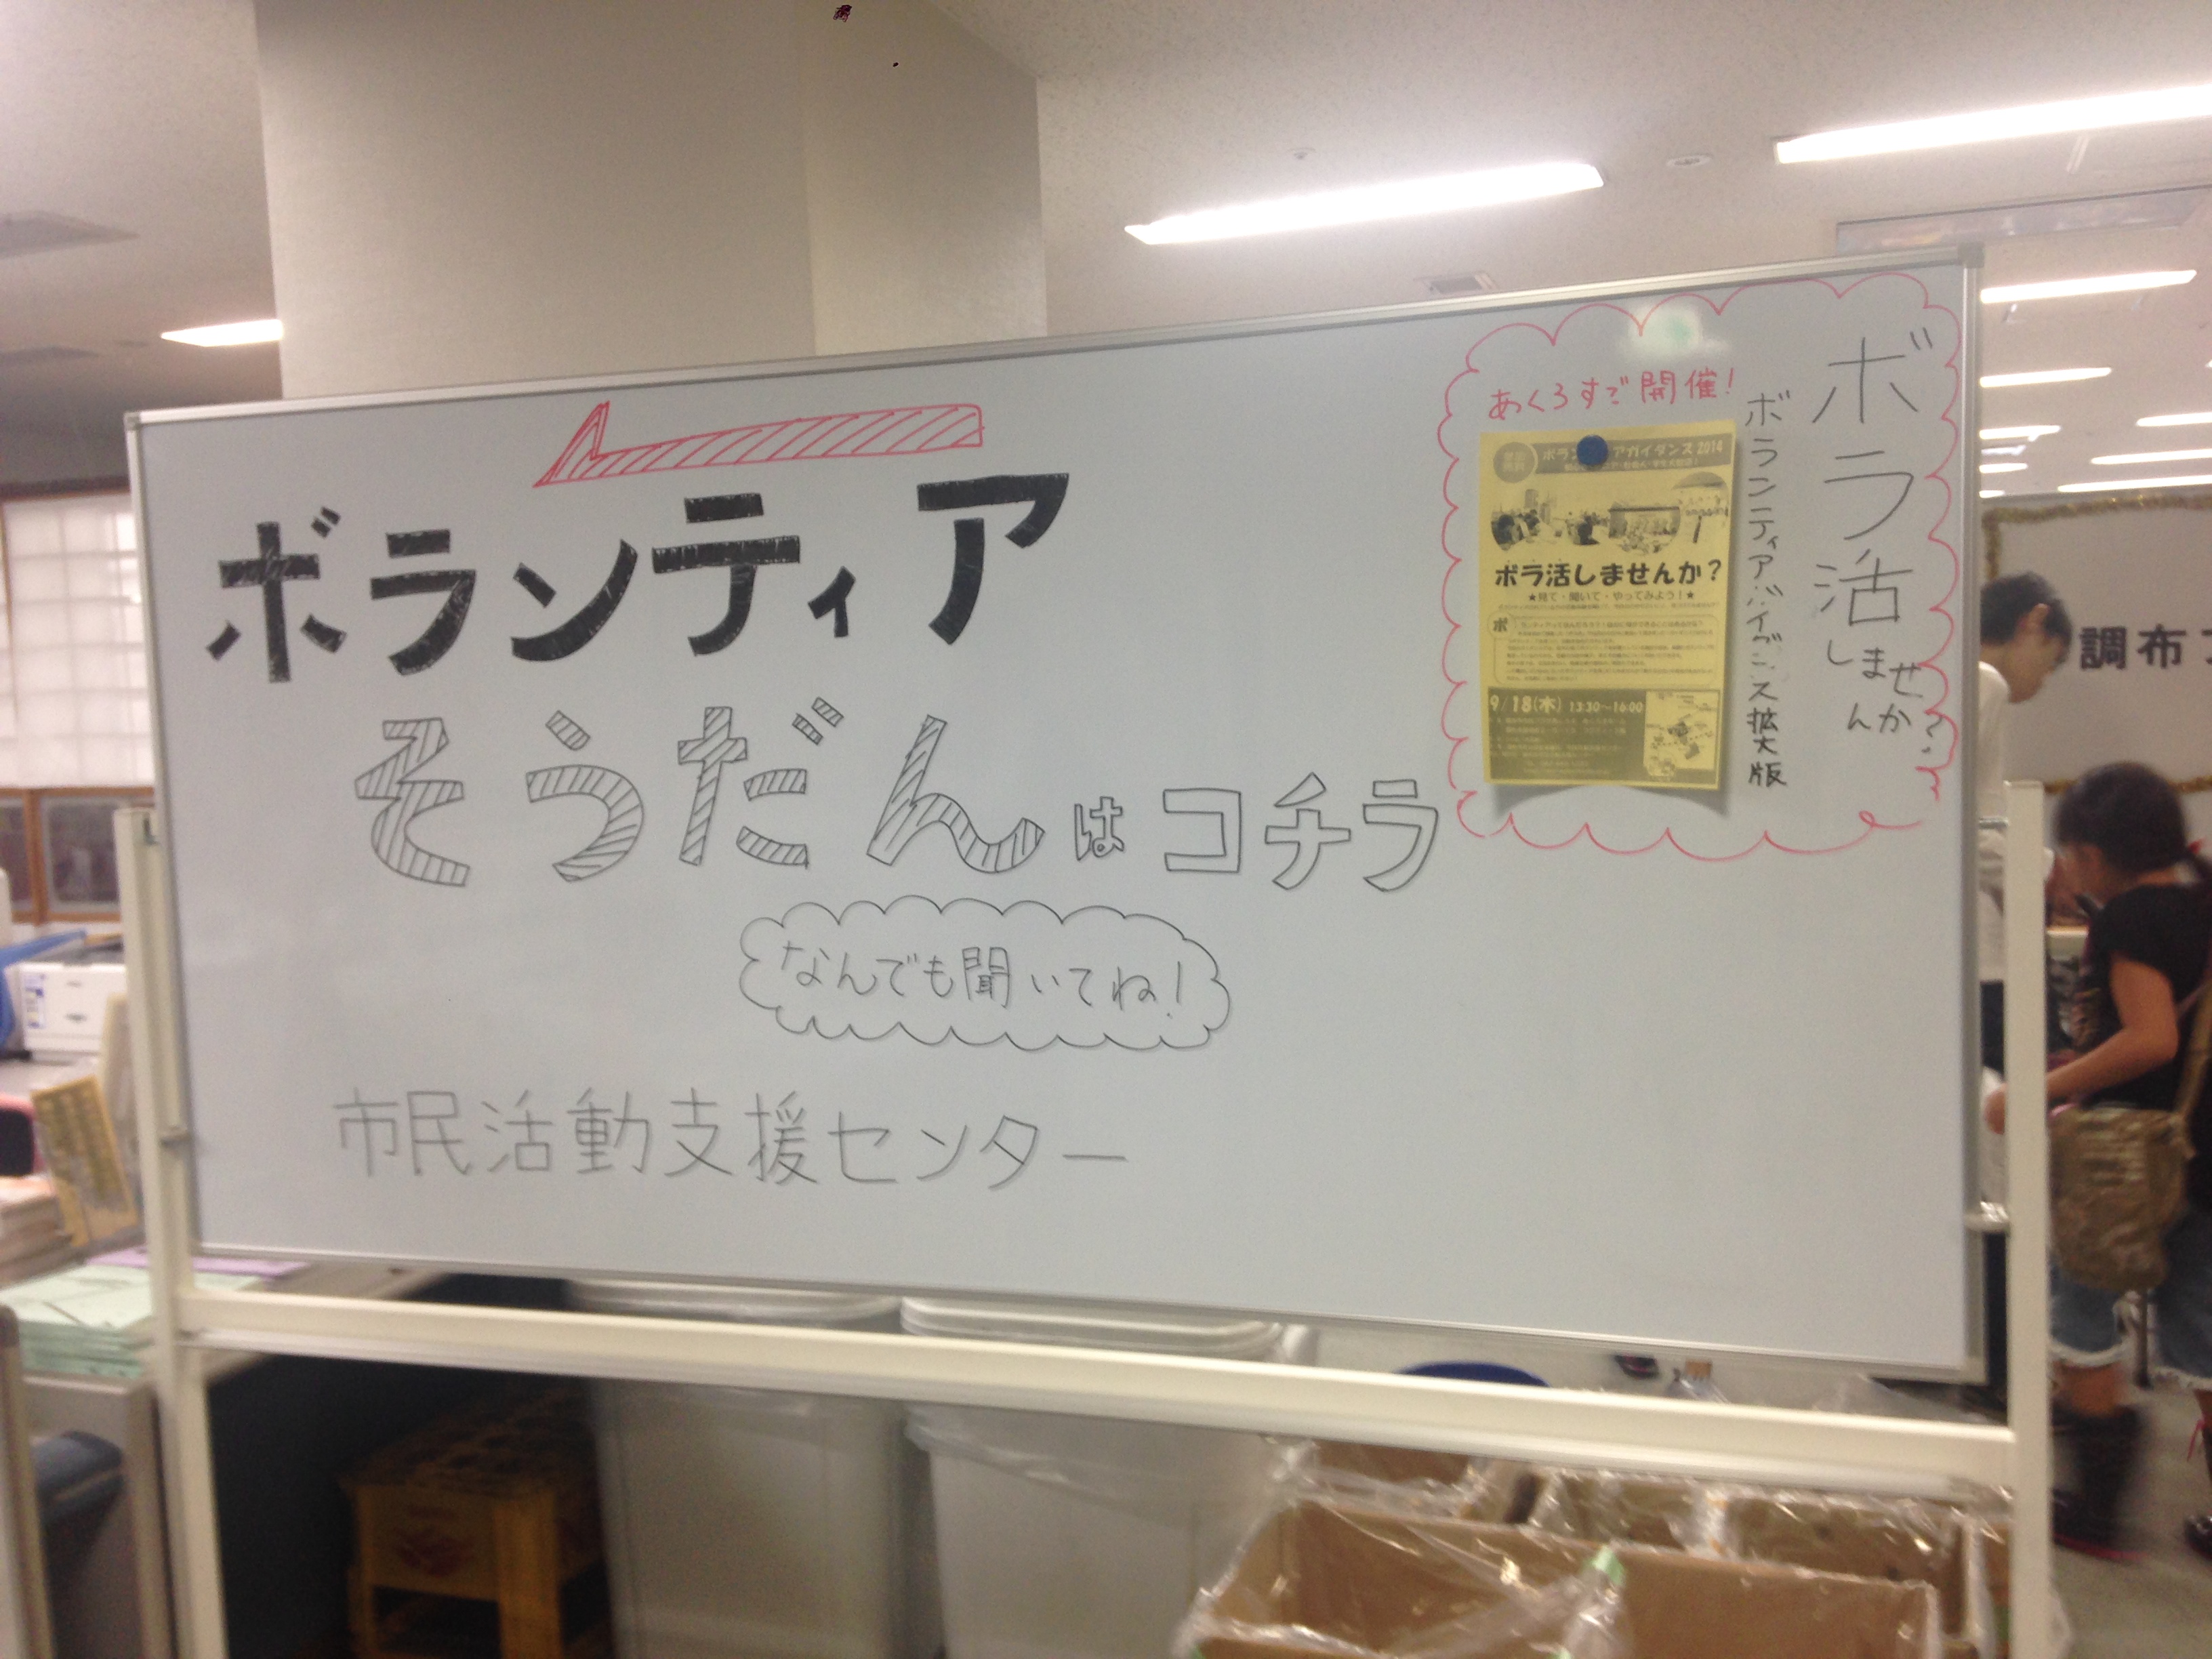 ボランティア
そうだんはコチラ
なんでも聞いてね!
市民活動支援センター
ボラ活しませんか?
ボランティアガイダンス拡大版
あくろすで開催!
ガイダンス 2014
ボラ活しませんか?
★見て・聞いて・やってみよう!★
9/18(木) 13:30~16:00
調布